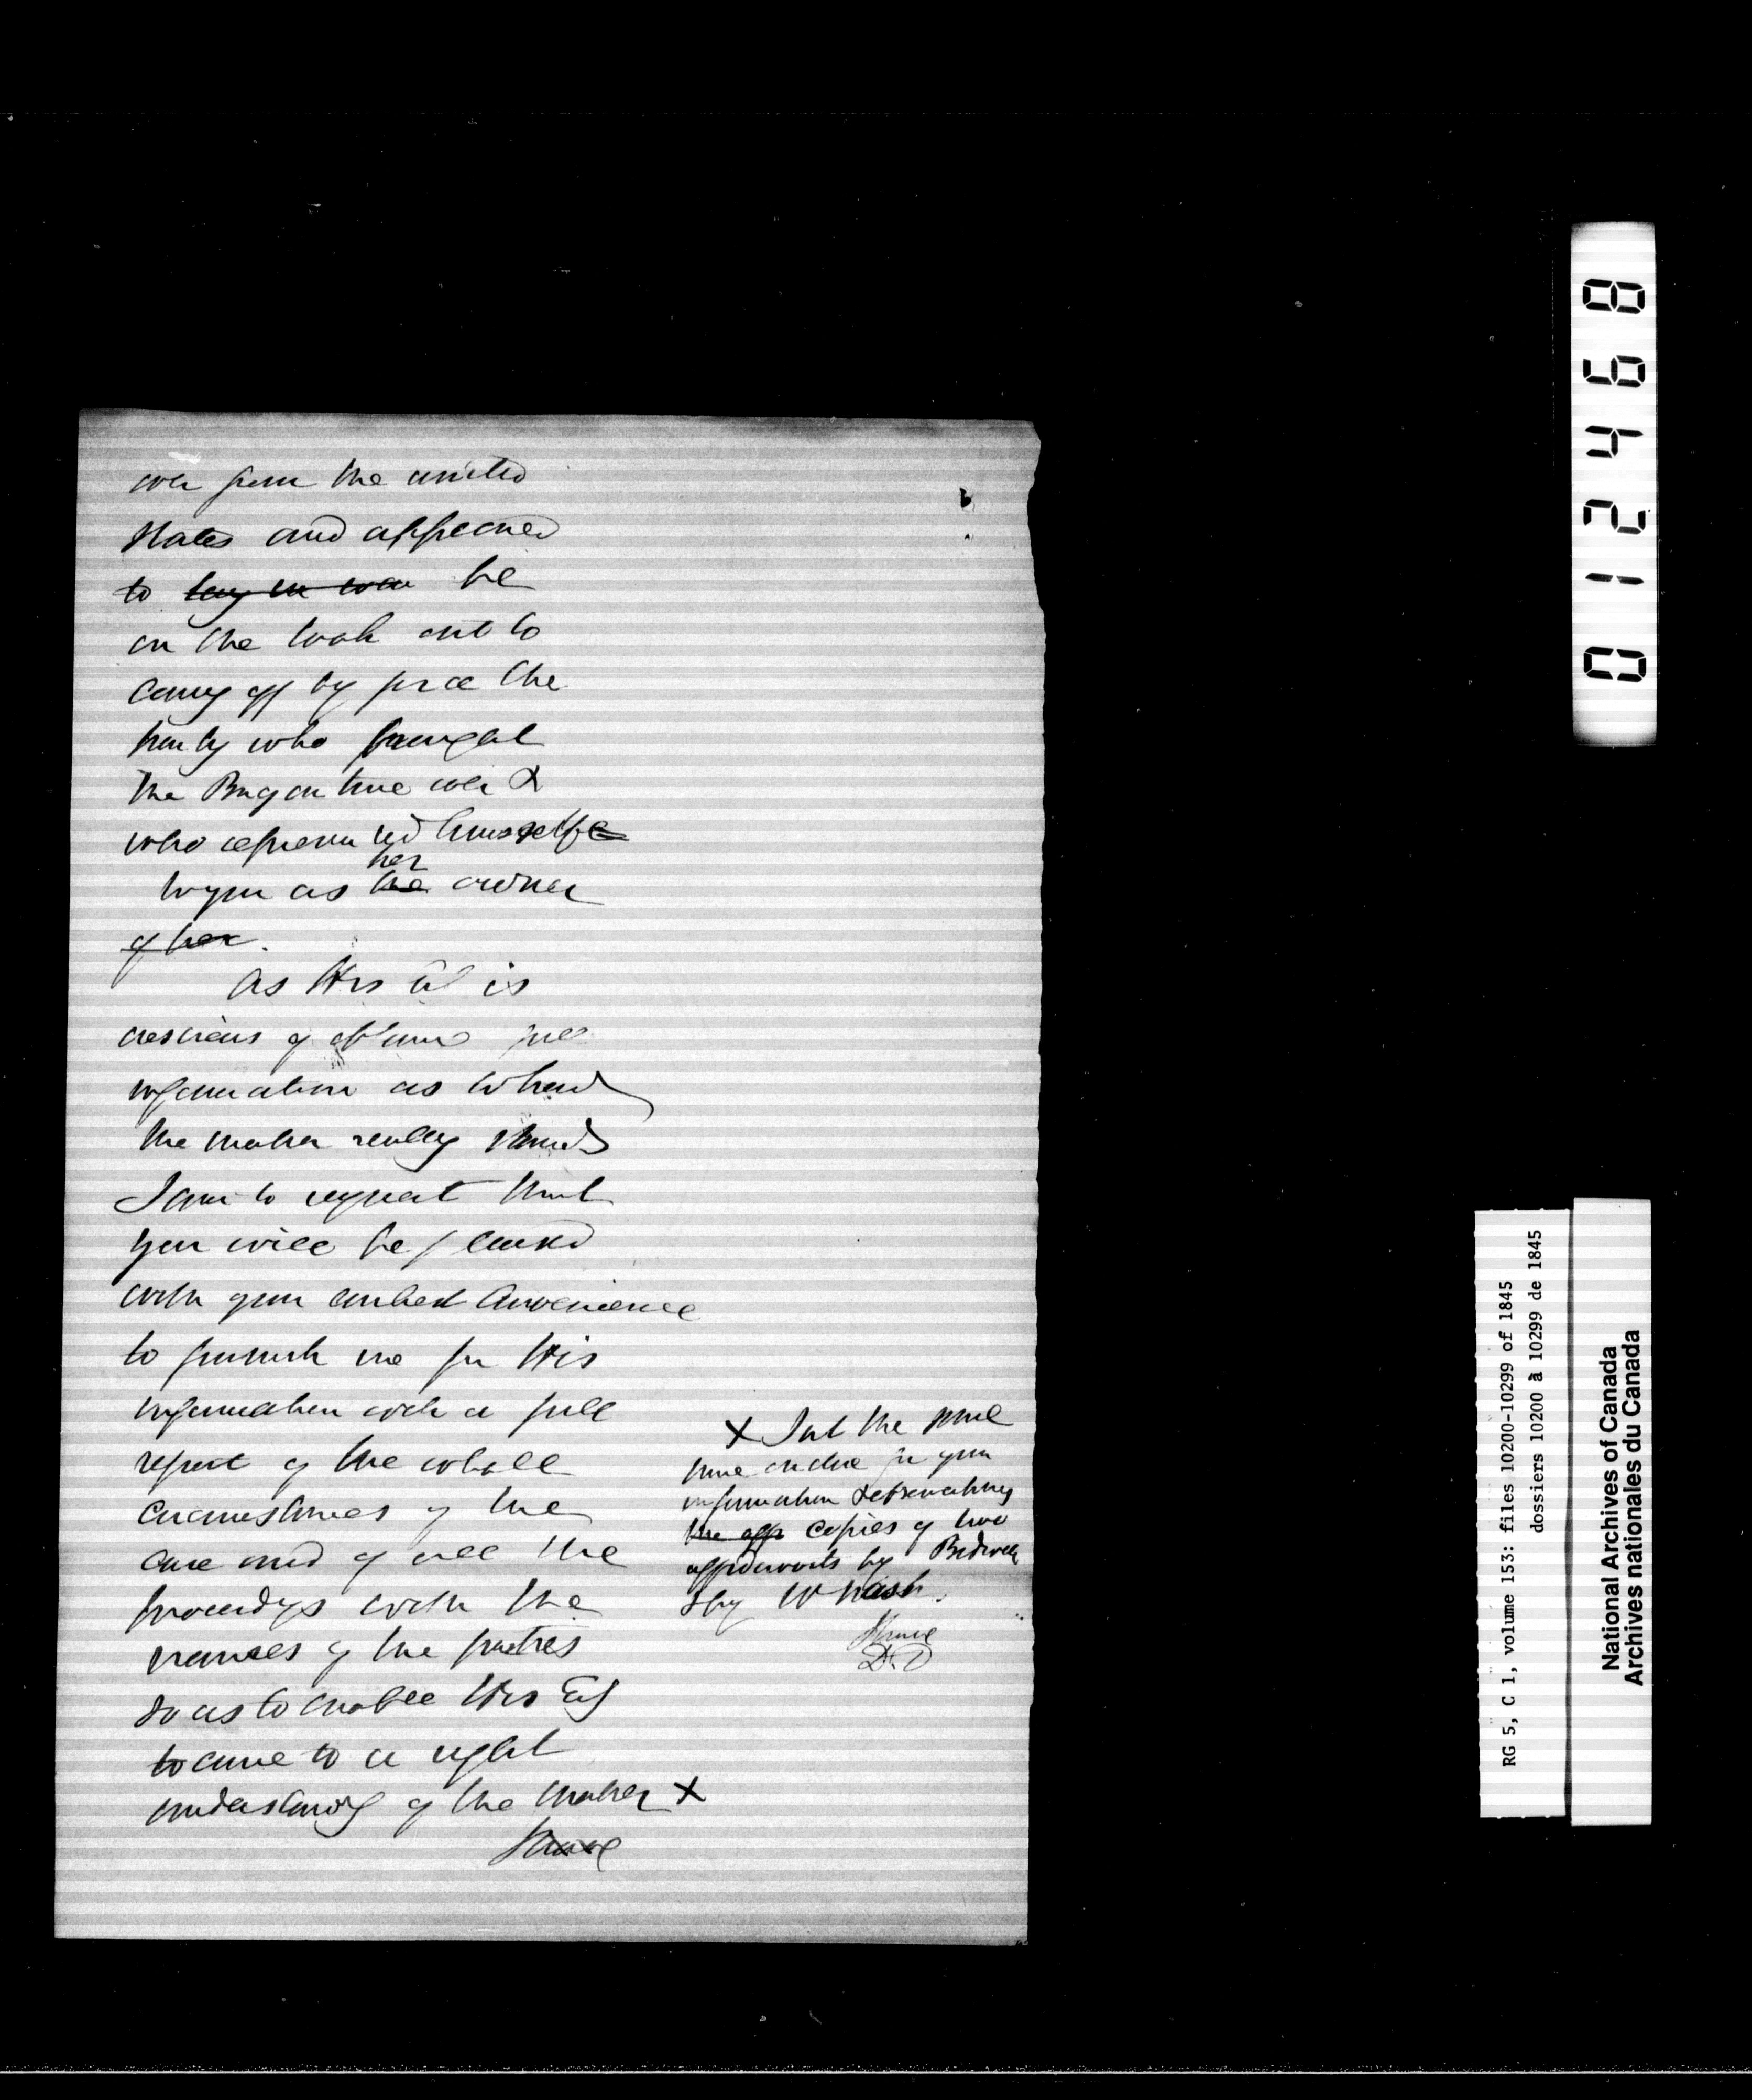 over from the united
States and appeared
to lay in wai be
on the look out to
carry off by force the
party who brought
the Brigantine over &
who represented himself
to you as the her owner
of her.
As His Ex is
desirous of obtaing full
information as to how
the matter really stands
I am to request that
you will be pleased
with your earliest convenience
to furnish me for His
information with a full
report of the whole
circumstances of the
case and of all the
proceedgs with the
names of the parties
so as to enable His Exy
to come to a right
understandg of the matter X
X I at the same
time enclose for your
information & observations
the aff copies of two
affidavits by Bidwell
& by W Nash.
I have
D.D
I have
012468
RG 5, C 1, volume 153: files 10200-10299 of 1845
dossiers 10200 à 10299 de 1845
National Archives of Canada
Archives nationales du Canada